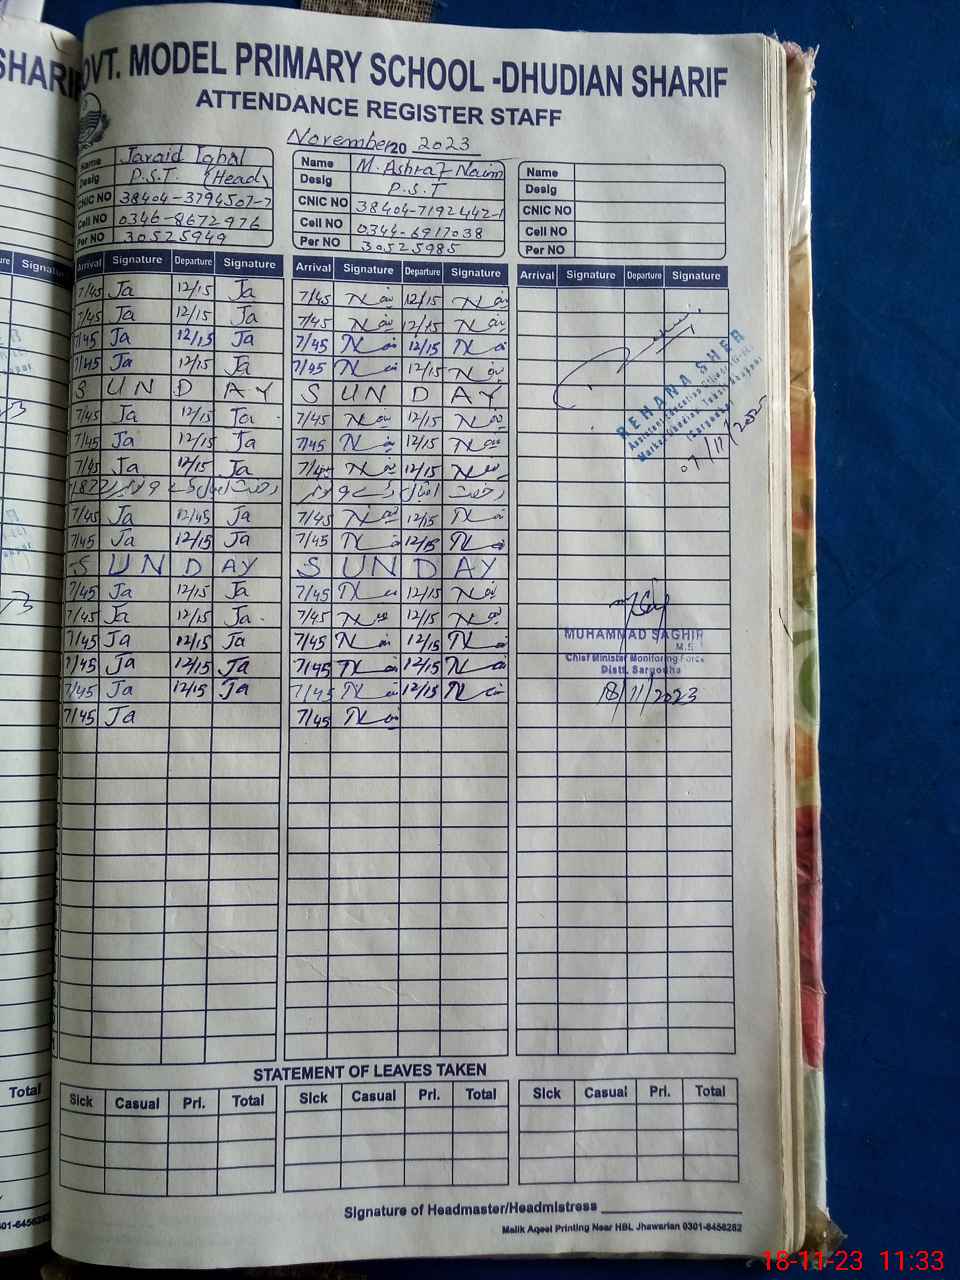 SHARIF
OVT. MODEL PRIMARY SCHOOL -DHUDIAN SHARIF
ATTENDANCE REGISTER STAFF
November 20 2023
Name Javaid Iqbal
Desig P.S.T (Head)
CNIC NO 38404-3794507-7
Cell NO 0346-8672976
Per NO 30525949
Name M. Ashraf Naim
Desig P.S.T
CNIC NO 38404-7192442-1
Cell NO 0344-6917038
Per NO 30525985
Name
Desig
CNIC NO
Cell NO
Per NO
Signature
Arrival Signature Departure Signature Arrival Signature Departure Signature Arrival Signature Departure Signature
7/45 Ja 12/15 Ja 7/45 12/15
7/45 Ja 12/15 Ja 7/45 12/15
7/45 Ja 12/15 Ja 7/45 12/15
7/45 Ja 12/15 Ja 7/45 12/15
S U N D A Y S U N D A Y
7/45 Ja 12/15 Ja 7/45 12/15
7/45 Ja 12/15 Ja 7/45 12/15
7/45 Ja 12/15 Ja 7/45 12/15
7/45 Ja 12/45 Ja 7/45 12/15
7/45 Ja 12/15 Ja 7/45 12/15
S U N D A Y S U N D A Y
7/45 Ja 12/15 Ja 7/45 12/15
7/45 Ja 12/15 Ja 7/45 12/15
7/45 Ja 12/15 Ja 7/45 12/15
7/45 Ja 12/15 Ja 7/45 12/15
7/45 Ja 12/15 Ja 7/45 12/15
7/45 Ja 7/45
REHANA SHER
Assistant Education Officer
(Sargodha)
MUHAMMAD SAGHIR
Chief Minister Monitoring Force
Distt. Sargodha
18/11/2023
STATEMENT OF LEAVES TAKEN
Total
Sick Casual Pri. Total Sick Casual Pri. Total Sick Casual Pri. Total
Signature of Headmaster/Headmistress
Malik Aqeel Printing Near HBL Jhawarian 0301-6456282
18-11-23 11:33